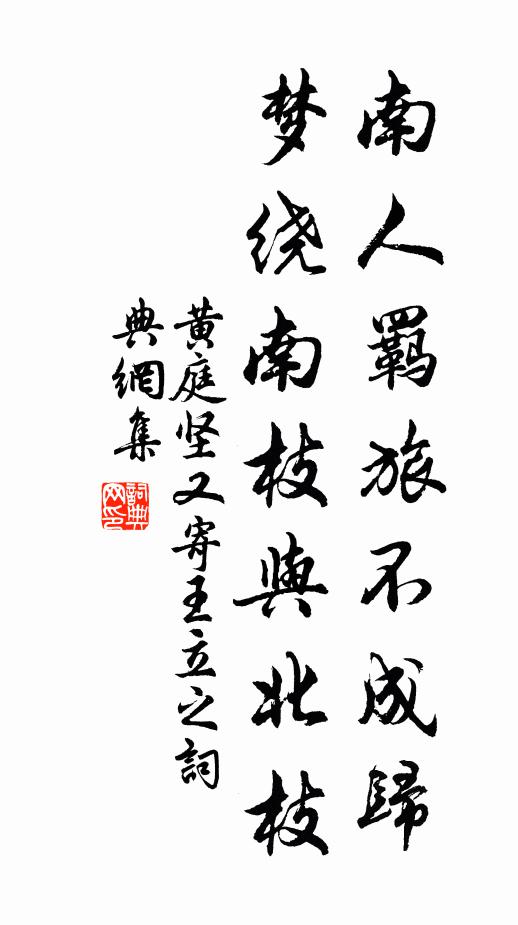 南人羁旅不成歸
梦绕南枝與北枝
黄庭坚又寄王立之詞
典網集
詞典
网印